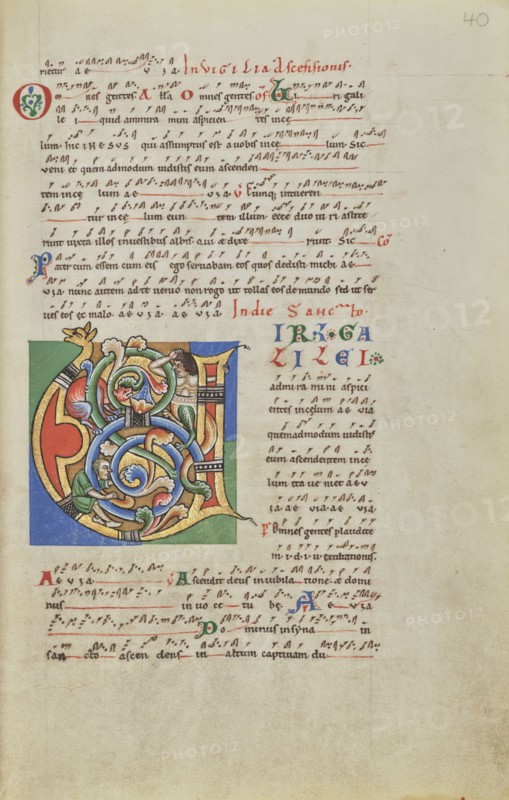 40
rietur a e u ɜ a In VIGILIA Ascensionis.
Omnes gentes A lla O mnes gentes off Viri gali
le i quid ammira mini aspicien tes in cę
lum· hic IHESUS qui assumptus est a vobis in cę lum· Sic
veni et quem admodum vidistis eum ascenden
tem in cę lum a e u ɜ a V Cumq; intueren
tur in cę lum eun tem illum· ecce duo viri astite
runt iuxta illos in vestibus albis· qui & dixe runt· Sic Co
Pater cum essem cum eis ego servabam eos quos dedisti michi a e
u ɜ a· nunc autem ad te venio non rogo ut tollas eos de mundo sed ut ser
ves eos ec malo· a e u ɜ a a e u ɜ a In die Sancto·
VIRI· GA
LILEI
admira mini aspici
entes in cęlum a e u ɜ a
quemadmodum vidistis
eum ascendentem in cę
lum ita ve niet a e v
ɜ a· a e u ɜ a· a e u ɜ a
P Omnes gentes plaudite
m· i· d· i· w exultationis·
A e u ɜ a V Ascendit deus in iubila tione· & domi
nus in vo ce tu bę· A e u ɜ a
Do minus in syna in
san cto ascen dens in altum captivam du
PHOTO12